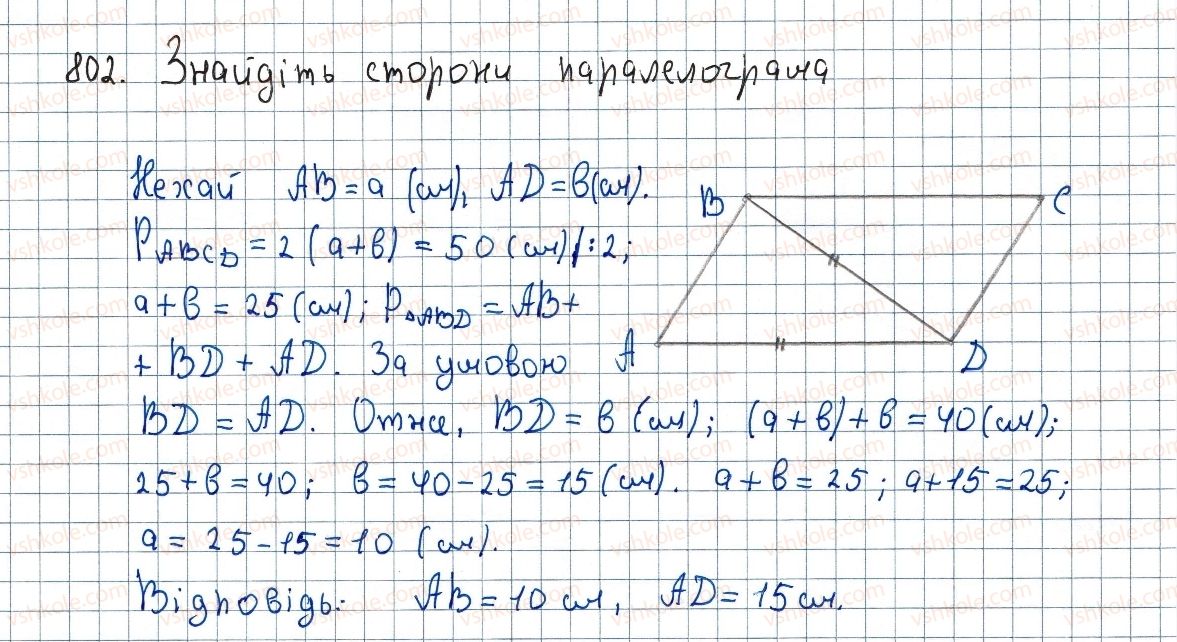 802. Знайдіть сторони паралелограма
Нехай AB = a (см), AD = b (см).
P_ABCD = 2 (a+b) = 50 (см) /:2;
a + b = 25 (см); P_△ABD = AB +
+ BD + AD. За умовою
BD = AD. Отже, BD = b (см); (a + b) + b = 40 (см);
25 + b = 40; b = 40 - 25 = 15 (см). a + b = 25; a + 15 = 25;
a = 25 - 15 = 10 (см).
Відповідь: AB = 10 см, AD = 15 см.
B
C
A
D
vshkole.com